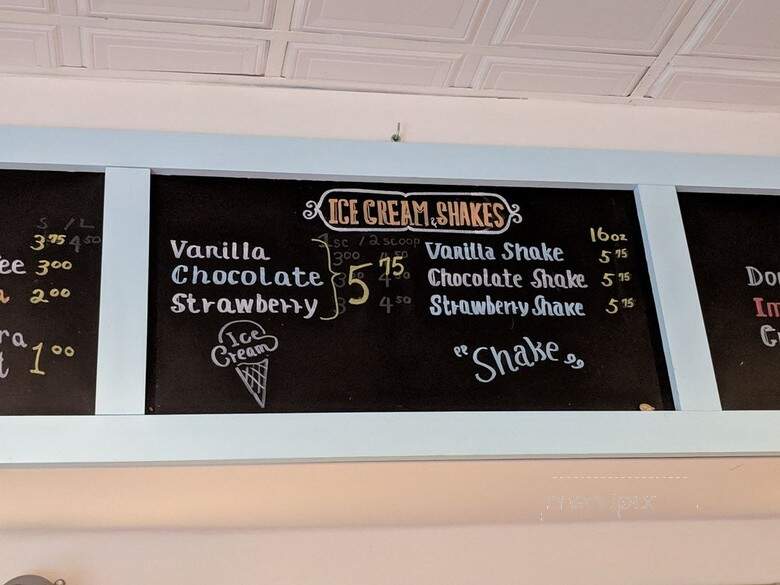 S / L
3 75 4 50
ee 3 00
a 2 00
ra
t 1 00
ICE CREAM & SHAKES
1 SC / 2 SCOOP
Vanilla 3 00
Chocolate 5 75
Strawberry 4 50
Ice
Cream
16 oz
Vanilla Shake 5 75
Chocolate Shake 5 75
Strawberry Shake 5 75
"Shake"
Do
Im
menupix